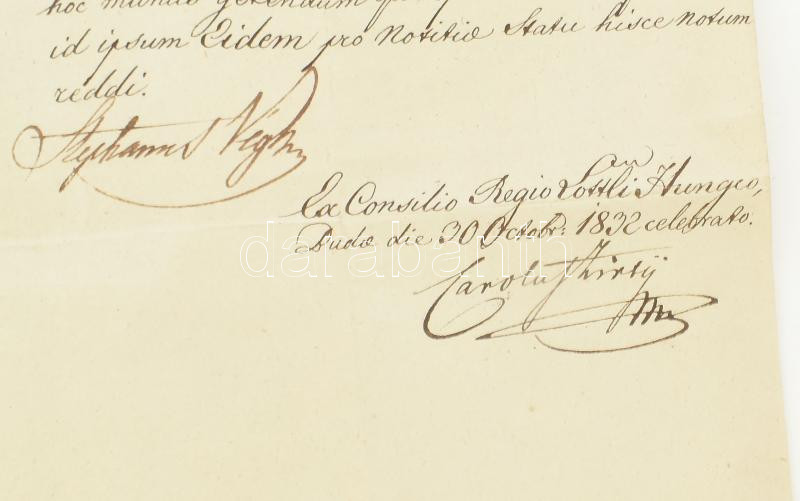 hoc munus gerendum
id ipsum Eidem pro Notitiæ Statu hisce notum
reddi.
Stephanus Végh
Ex Consilio Regio Lottli Hungco,
Budæ die 30 Octobr: 1832 celebrato.
Carolus
darabanth